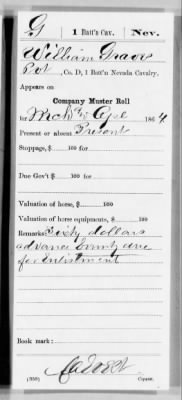 G | 1 Batt'n Cav. | Nev.
William Graves
Pvt, Co. D, 1 Batt'n Nevada Cavalry.
Appears on
Company Muster Roll
for Mch & Apl, 1864.
Present or absent Present
Stoppage, $ 100 for
Due Gov't $ 100 for
Valuation of horse, $ 100
Valuation of horse equipments, $ 100
Remarks: Sixty dollars
advance bounty due
for Enlistment
Book mark:
(359)
Copyist.